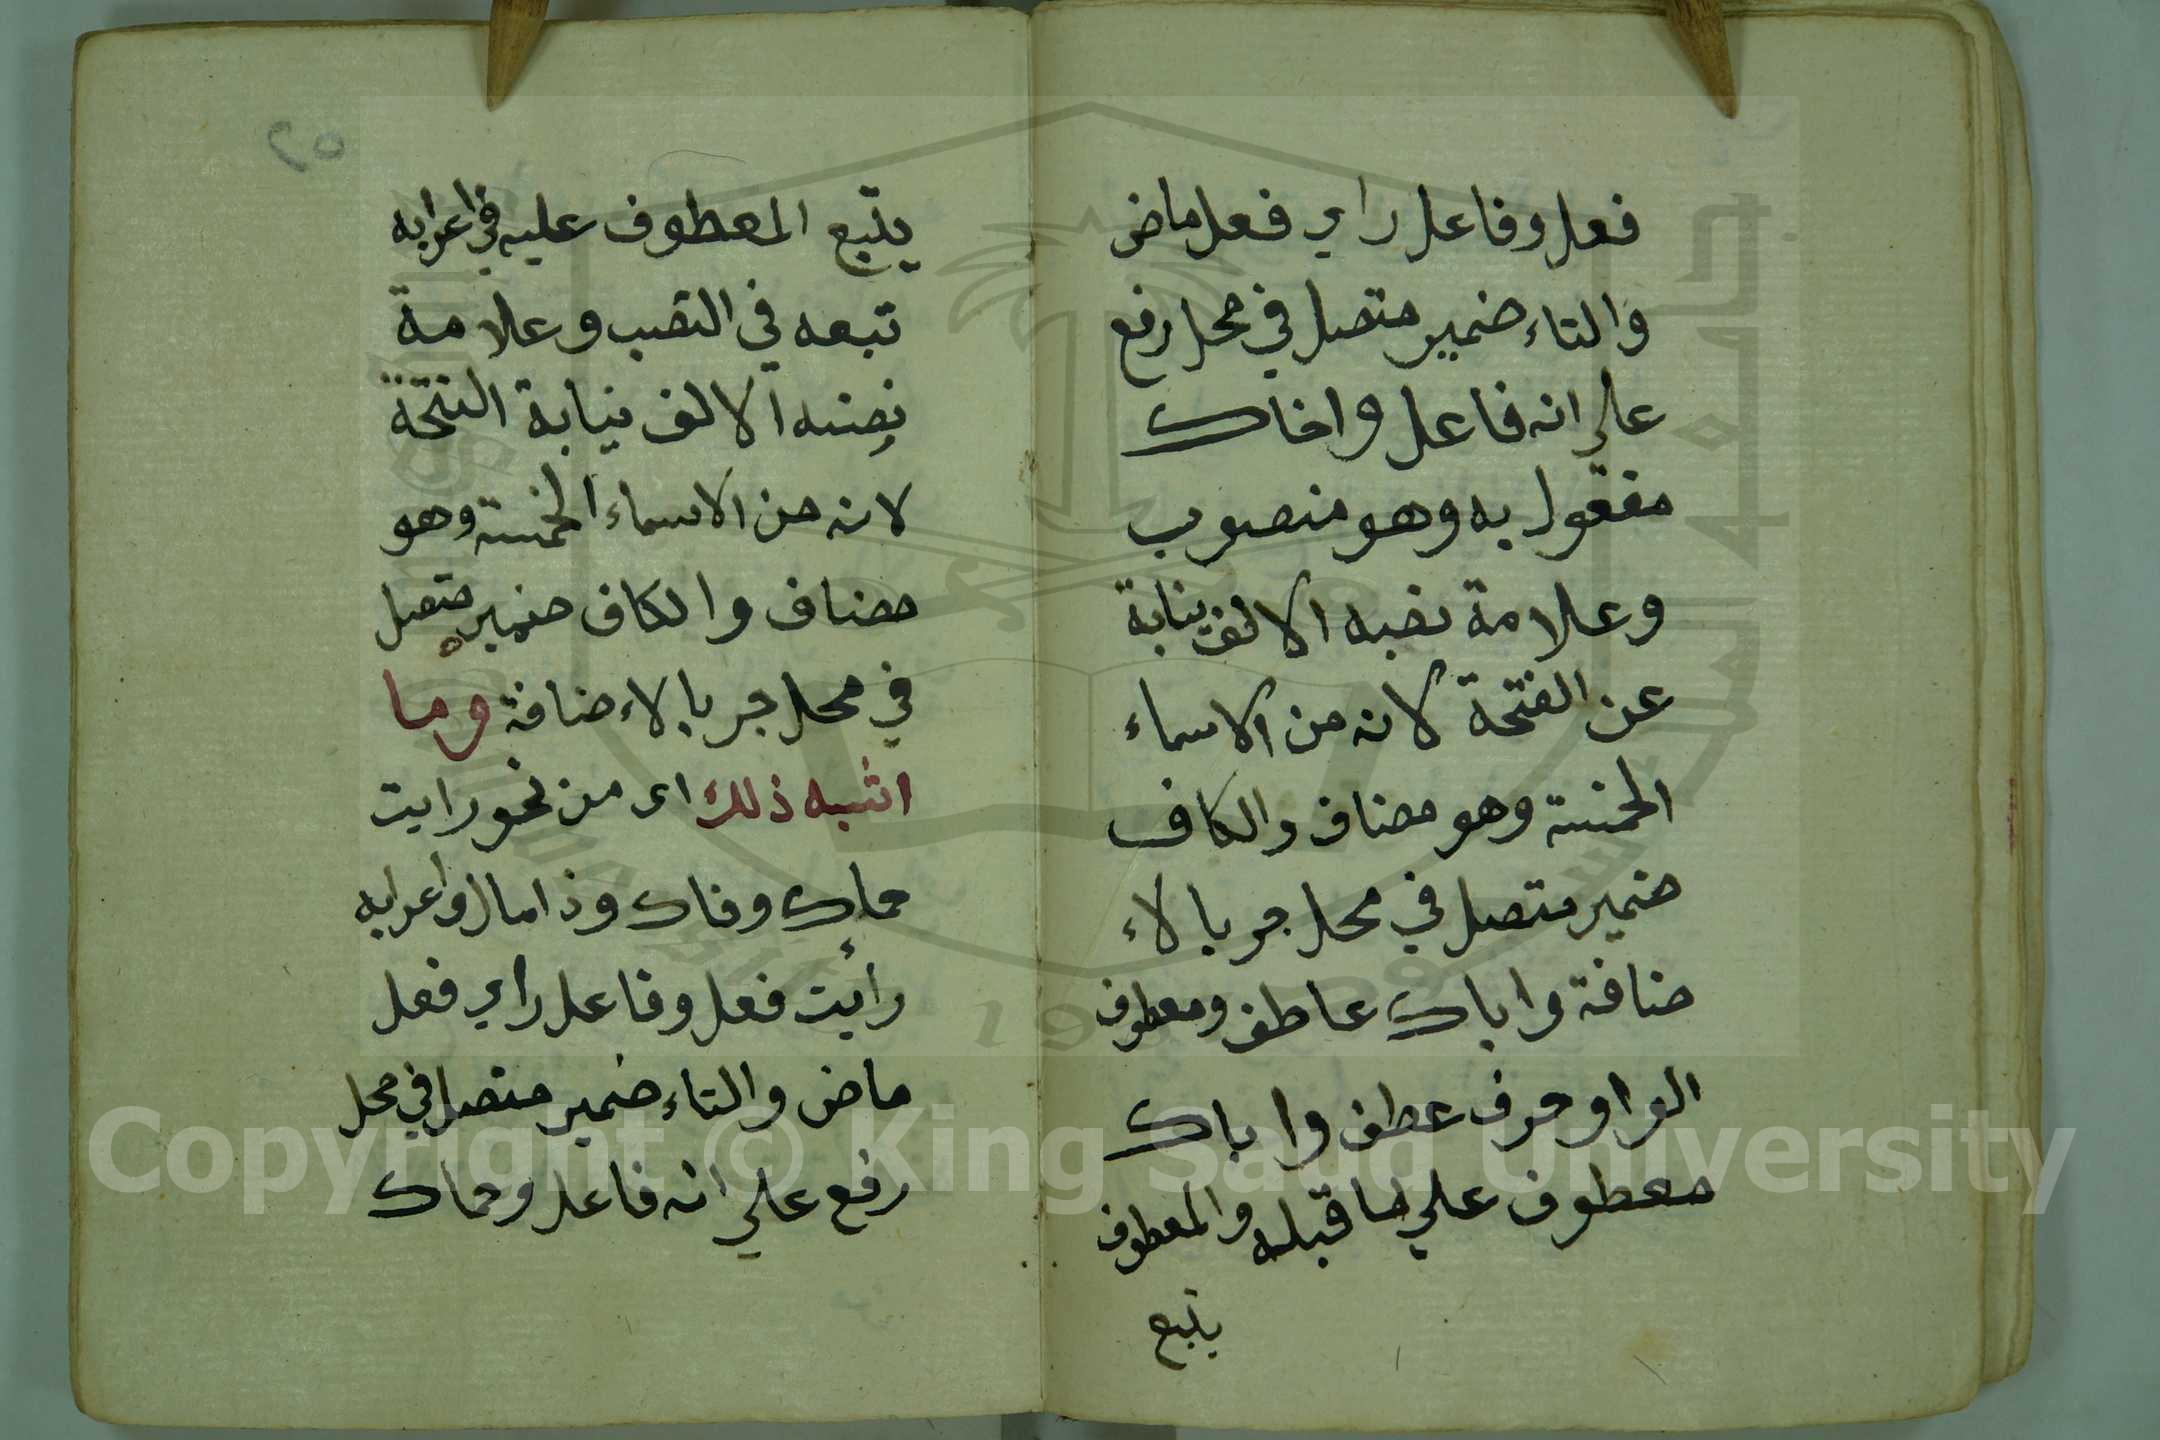 فعل وفاعل راي فعل ماض
والتاء ضمير متصل في محل رفع
علي انه فاعل واخاك
مفعول به وهو منصوب
وعلامة نصبه الالف نيابة
عن الفتحة لانه من الاسماء
الخمسة وهو مضاف والكاف
ضمير متصل في محل جر بالاء
ضافة واباك عاطف ومعطوف
الواو حرف عطف واباك
معطوف علي ما قبله والمعطوف
يتبع
٥٢
يتبع المعطوف عليه في اعرابه
تبعه في النصب وعلامة
نصبه الالف نيابة الفتحة
لانه من الاسماء الخمسة وهو
مضاف والكاف ضمير متصل
في محل جر بالاءضافة وما
اشبه ذلك اي من نحو رايت
حماك وفاك وذا مال واعرابه
رأيت فعل وفاعل راي فعل
ماض والتاء ضمير متصل في محل
رفع علي انه فاعل وحماك
Copyright © King Saud University